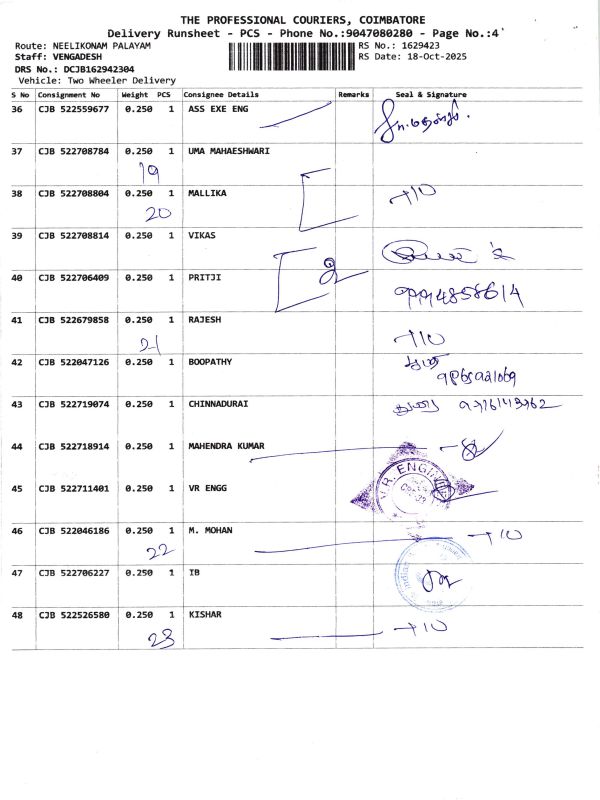 THE PROFESSIONAL COURIERS, COIMBATORE
Delivery Runsheet - PCS - Phone No.:9047080280 - Page No.:4
Route: NEELIKONAM PALAYAM RS No.: 1629423
Staff: VENGADESH RS Date: 18-Oct-2025
DRS No.: DCJB162942304
Vehicle: Two Wheeler Delivery
S No Consignment No Weight PCS Consignee Details Remarks Seal & Signature
36 CJB 522559677 0.250 1 ASS EXE ENG
37 CJB 522708784 0.250 1 UMA MAHAESHWARI
19
38 CJB 522708804 0.250 1 MALLIKA
20
39 CJB 522708814 0.250 1 VIKAS
40 CJB 522706409 0.250 1 PRITJI
9994858614
41 CJB 522679858 0.250 1 RAJESH
21
42 CJB 522047126 0.250 1 BOOPATHY
43 CJB 522719074 0.250 1 CHINNADURAI
44 CJB 522718914 0.250 1 MAHENDRA KUMAR
45 CJB 522711401 0.250 1 VR ENGG
46 CJB 522046186 0.250 1 M. MOHAN
22
47 CJB 522706227 0.250 1 IB
48 CJB 522526580 0.250 1 KISHAR
23